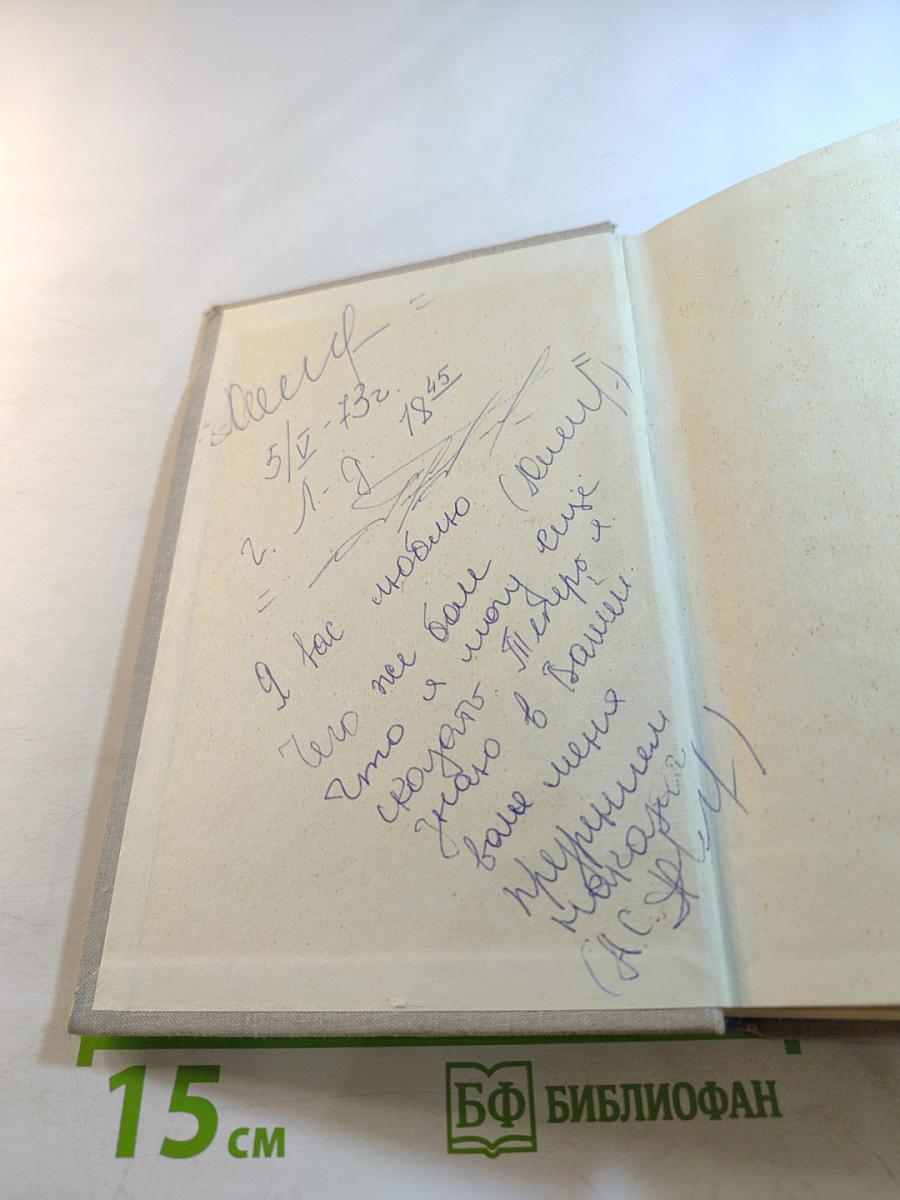 5/V-73г.
г. Л-д. 18 45
Я вас люблю
Чего же боле
Что я могу еще
сказать. Теперь я
знаю в Вашей
воле меня
презрением
наказать
(А.С.
15 см
БФ БИБЛИОФАН